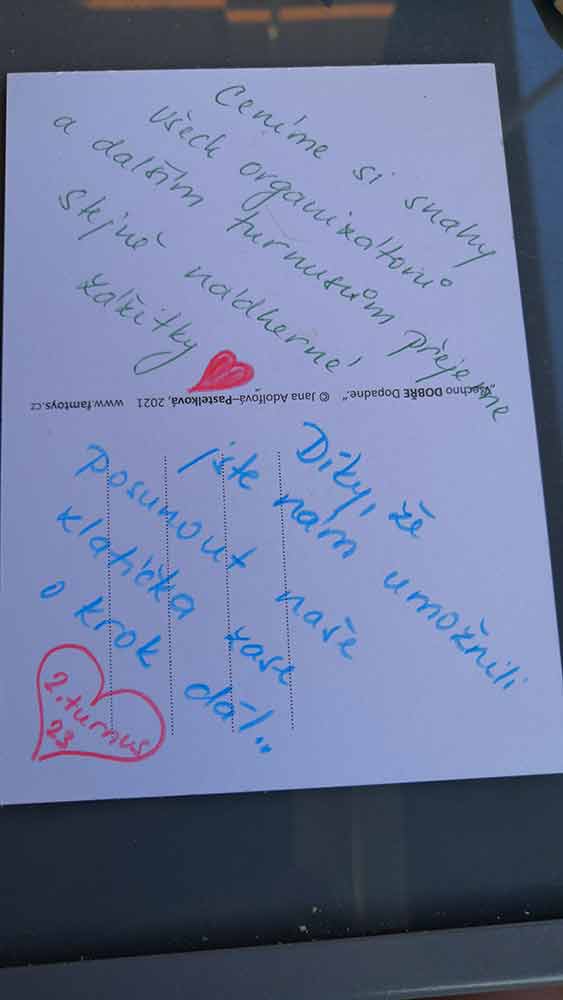 Ceníme si snahy
všech organizátorů
a dalším turnusům přejeme
stejně nádherné
zážitky
„Všechno DOBŘE Dopadne.“ © Jana Adolfová–Pastelková, 2021 www.famtoys.cz
Díky, že
jste nám umožnili
posunout naše
klatíčka zase
o krok dál..
2. turnus
23